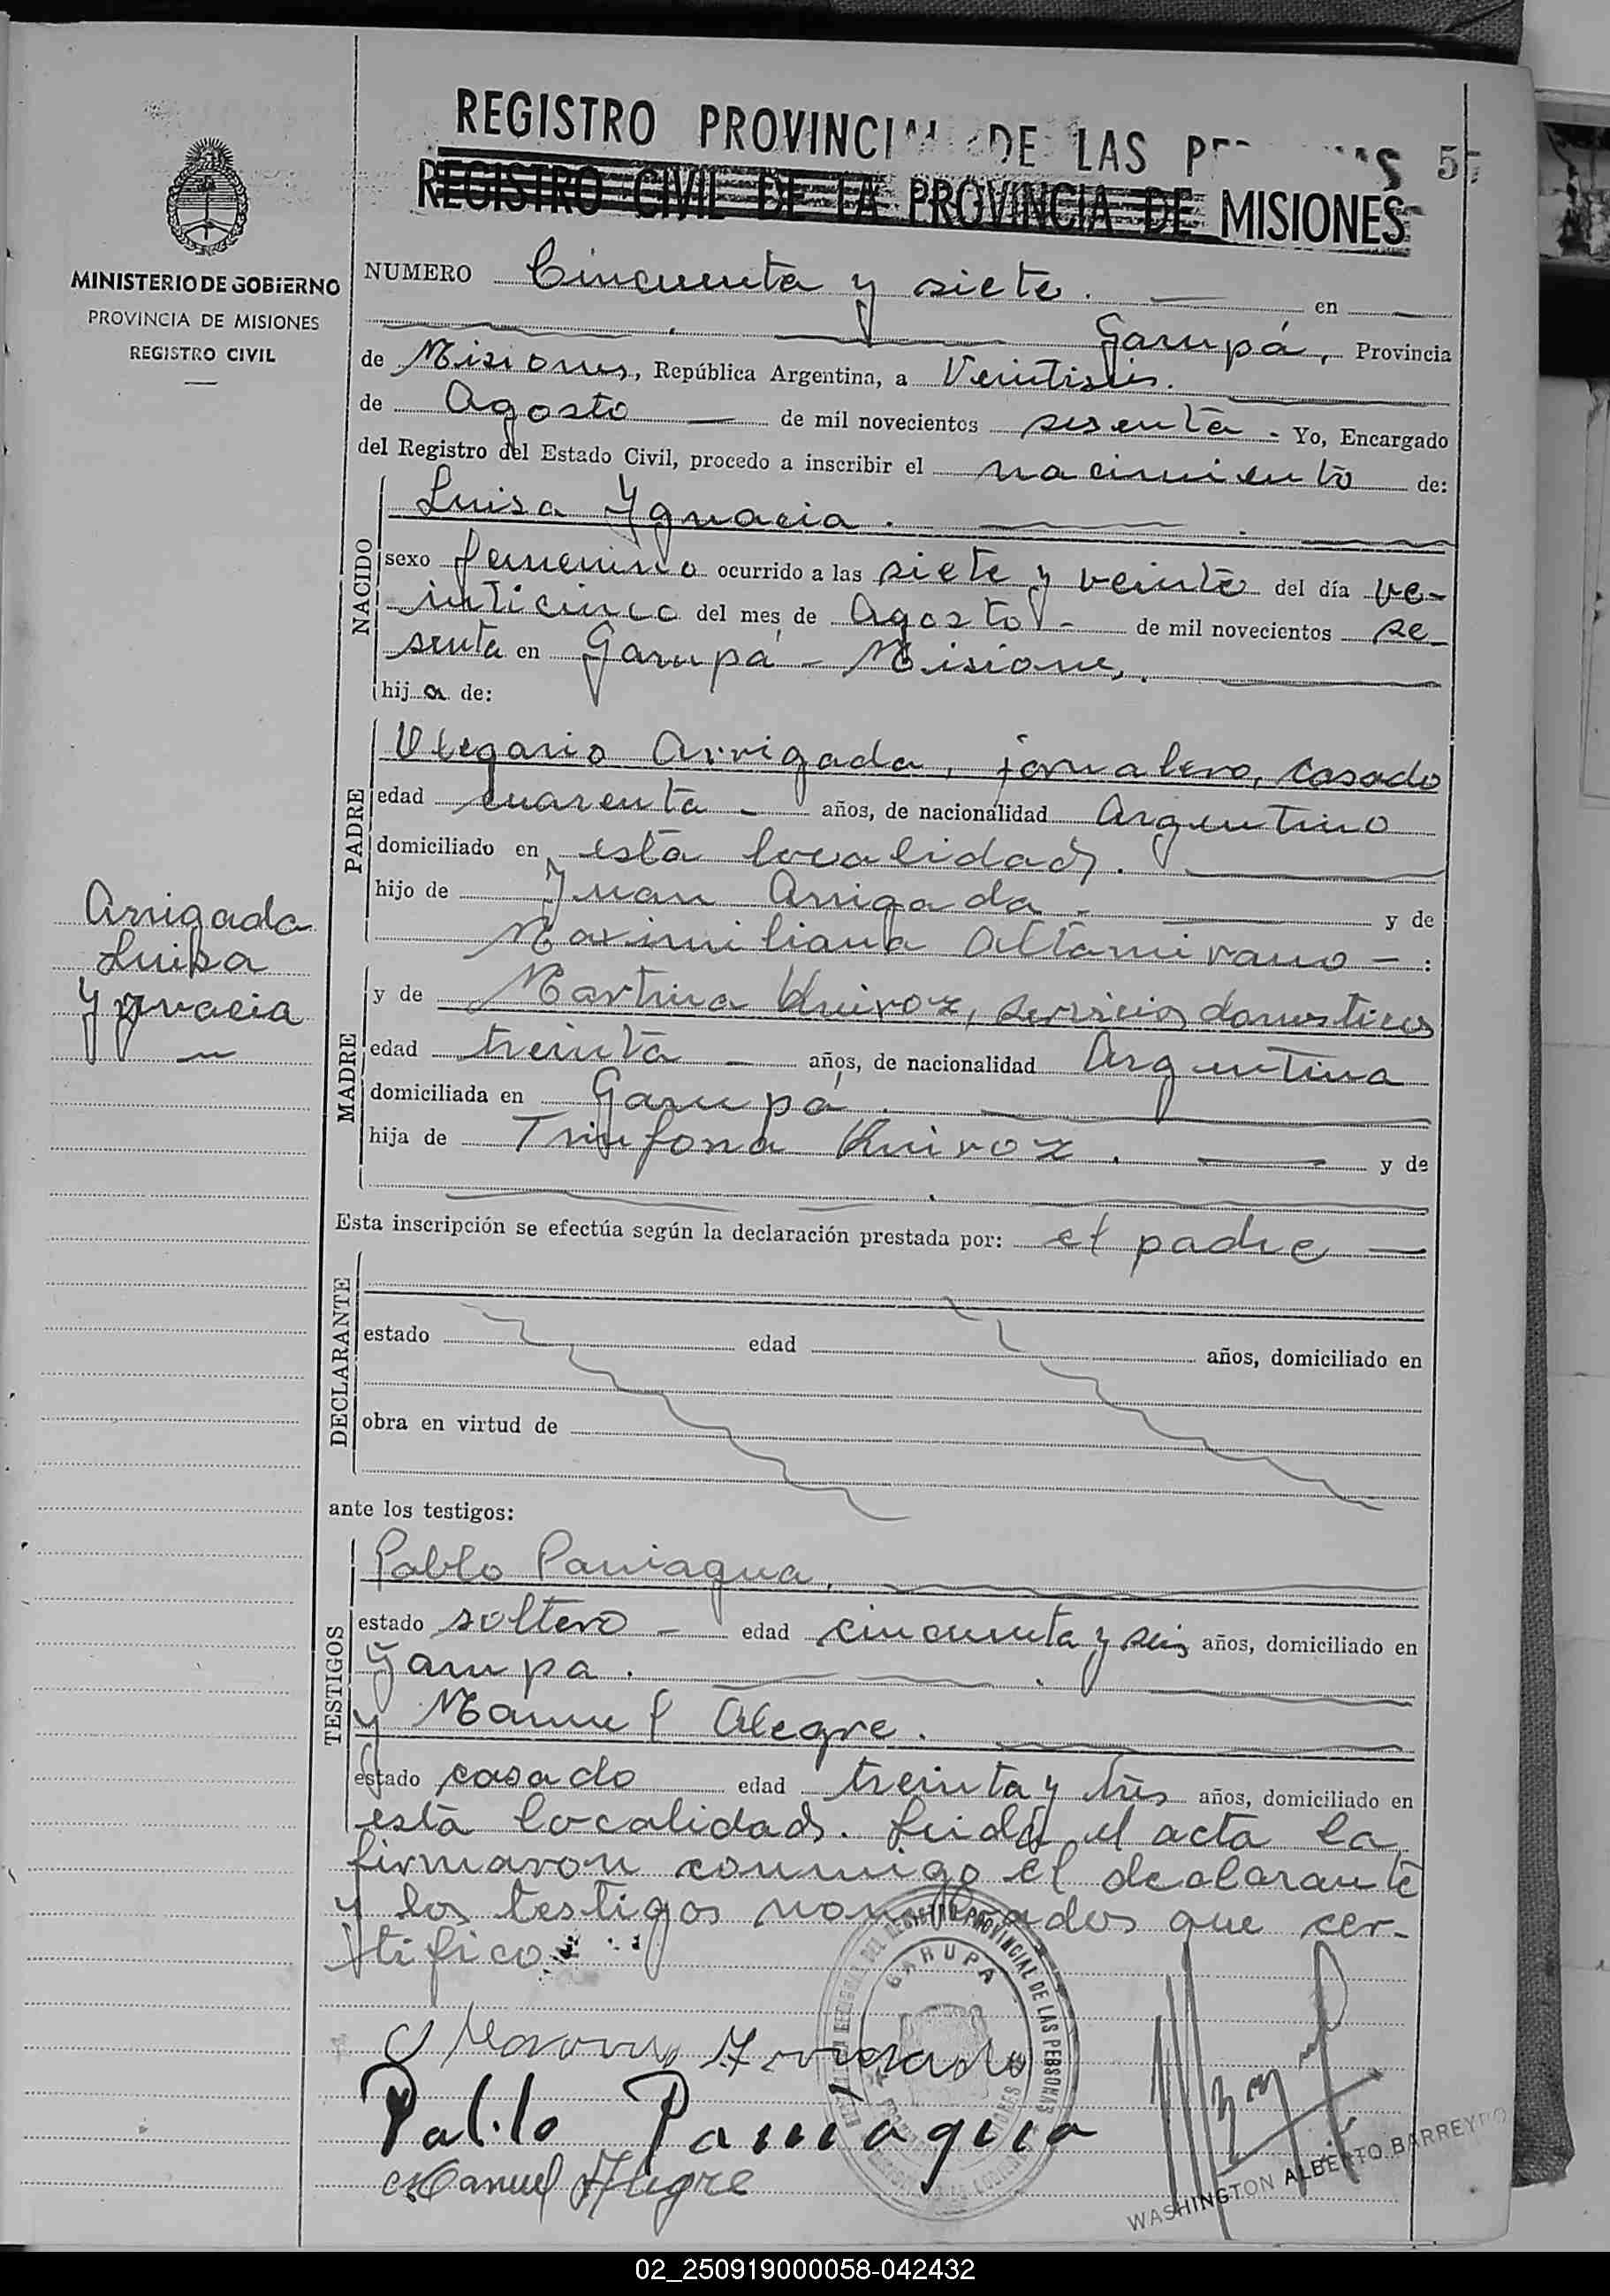 REGISTRO PROVINCIAL DE LAS 57
REGISTRO CIVIL DE LA PROVINCIA DE MISIONES
MINISTERIO DE GOBIERNO
PROVINCIA DE MISIONES
REGISTRO CIVIL
NUMERO Cincuenta y siete. en
Garupá, Provincia
de Misiones, República Argentina, a Veintiseis.
de Agosto de mil novecientos sesenta - Yo, Encargado
del Registro del Estado Civil, procedo a inscribir el nacimiento de:
NACIDO
Luisa Ygnacia.
sexo femenino ocurrido a las siete y veinte del día ve-
inticinco del mes de Agosto - de mil novecientos se
senta en Garupá - Misiones.
hij a de:
PADRE
Olegario Arrigada, jornalero, casado
edad cuarenta - años, de nacionalidad Argentino
domiciliado en esta localidad.
hijo de Juan Arrigada - y de
Maximiliana Altamirano - :
Arrigada
Luisa
Ygnacia
MADRE
y de Martina Kuiroz, servicios domesticos
edad treinta - años, de nacionalidad Argentina
domiciliada en Garupá.
hija de Trinfona Kuiroz. y de
Esta inscripción se efectúa según la declaración prestada por: el padre
DECLARANTE
estado edad años, domiciliado en
obra en virtud de
ante los testigos:
TESTIGOS
Pablo Paniagua.
estado soltero - edad cincuenta y seis años, domiciliado en
Garupa.
y Manuel Alegre.
estado casado edad treinta y tres años, domiciliado en
esta localidad. Leida el acta la
firmaron conmigo el declarante
y los testigos nombrados que cer-
tifico
GARUPA
DEL REGISTRO PROVINCIAL DE LAS PERSONAS
Pablo Paniagua
Manuel Alegre
WASHINGTON ALBERTO BARREYRO
02_250919000058-042432